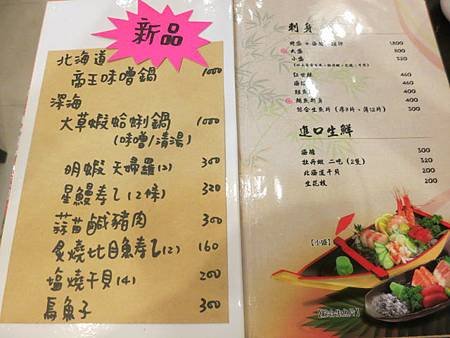 新品
北海道
帝王味噌鍋 1000
深海
大草蝦蛤蜊鍋 1000
(味噌/清湯)
明蝦天婦羅(2) 300
星鰻壽司(2條) 320
蒜苗鹹豬肉 300
炙燒比目魚壽司(2) 160
塩燒干貝(4) 200
烏魚子 300
刺身
1,800
大盛 500
小盛 300
紅甘鰺 460
海鱺 460
鮭魚 400
鮪魚刺身 400
綜合生魚片 (厚9片、薄12片) 300
進口生鮮
海膽 300
牡丹蝦 二吃 (2隻) 320
北海道干貝 200
生花枝 200
【小盛】
【綜合生魚片】